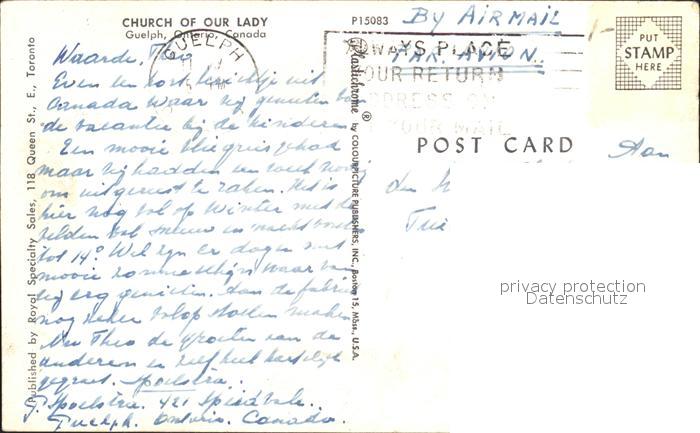 CHURCH OF OUR LADY
Guelph, Ontario, Canada
P15083
By AIRMAIL
PAR AVION.
GUELPH
ALWAYS PLACE
YOUR RETURN
ADDRESS ON
YOUR MAIL
PUT
STAMP
HERE
POST CARD
Aan
den H
Waarde, Theo
Even een kort berichtje uit
Canada waar wij genieten van
de vacantie bij de kinderen
Een mooie vliegreis gehad
maar wij hadden een week nodig
om uitgerust te raken. Het is
hier nog vol op Winter met de
velden vol sneeuw en nachtvorsten
tot 14° Wel zijn er dagen met
mooie zonneschijn waar van
wij erg genieten. Aan de fabriek
nog zeker volop stoelen maken
Nu Theo de groeten van de
anderen en zelf heel hartelijk
gegroet. Spoelstra.
Spoelstra. 421 Speedvale.
Guelph. Ontario. Canada.
Published by Royal Specialty Sales, 118 Queen St., E., Toronto
Plastichrome ® by COLOURPICTURE PUBLISHERS, INC., Boston 15, Mass., U.S.A.
privacy protection
Datenschutz